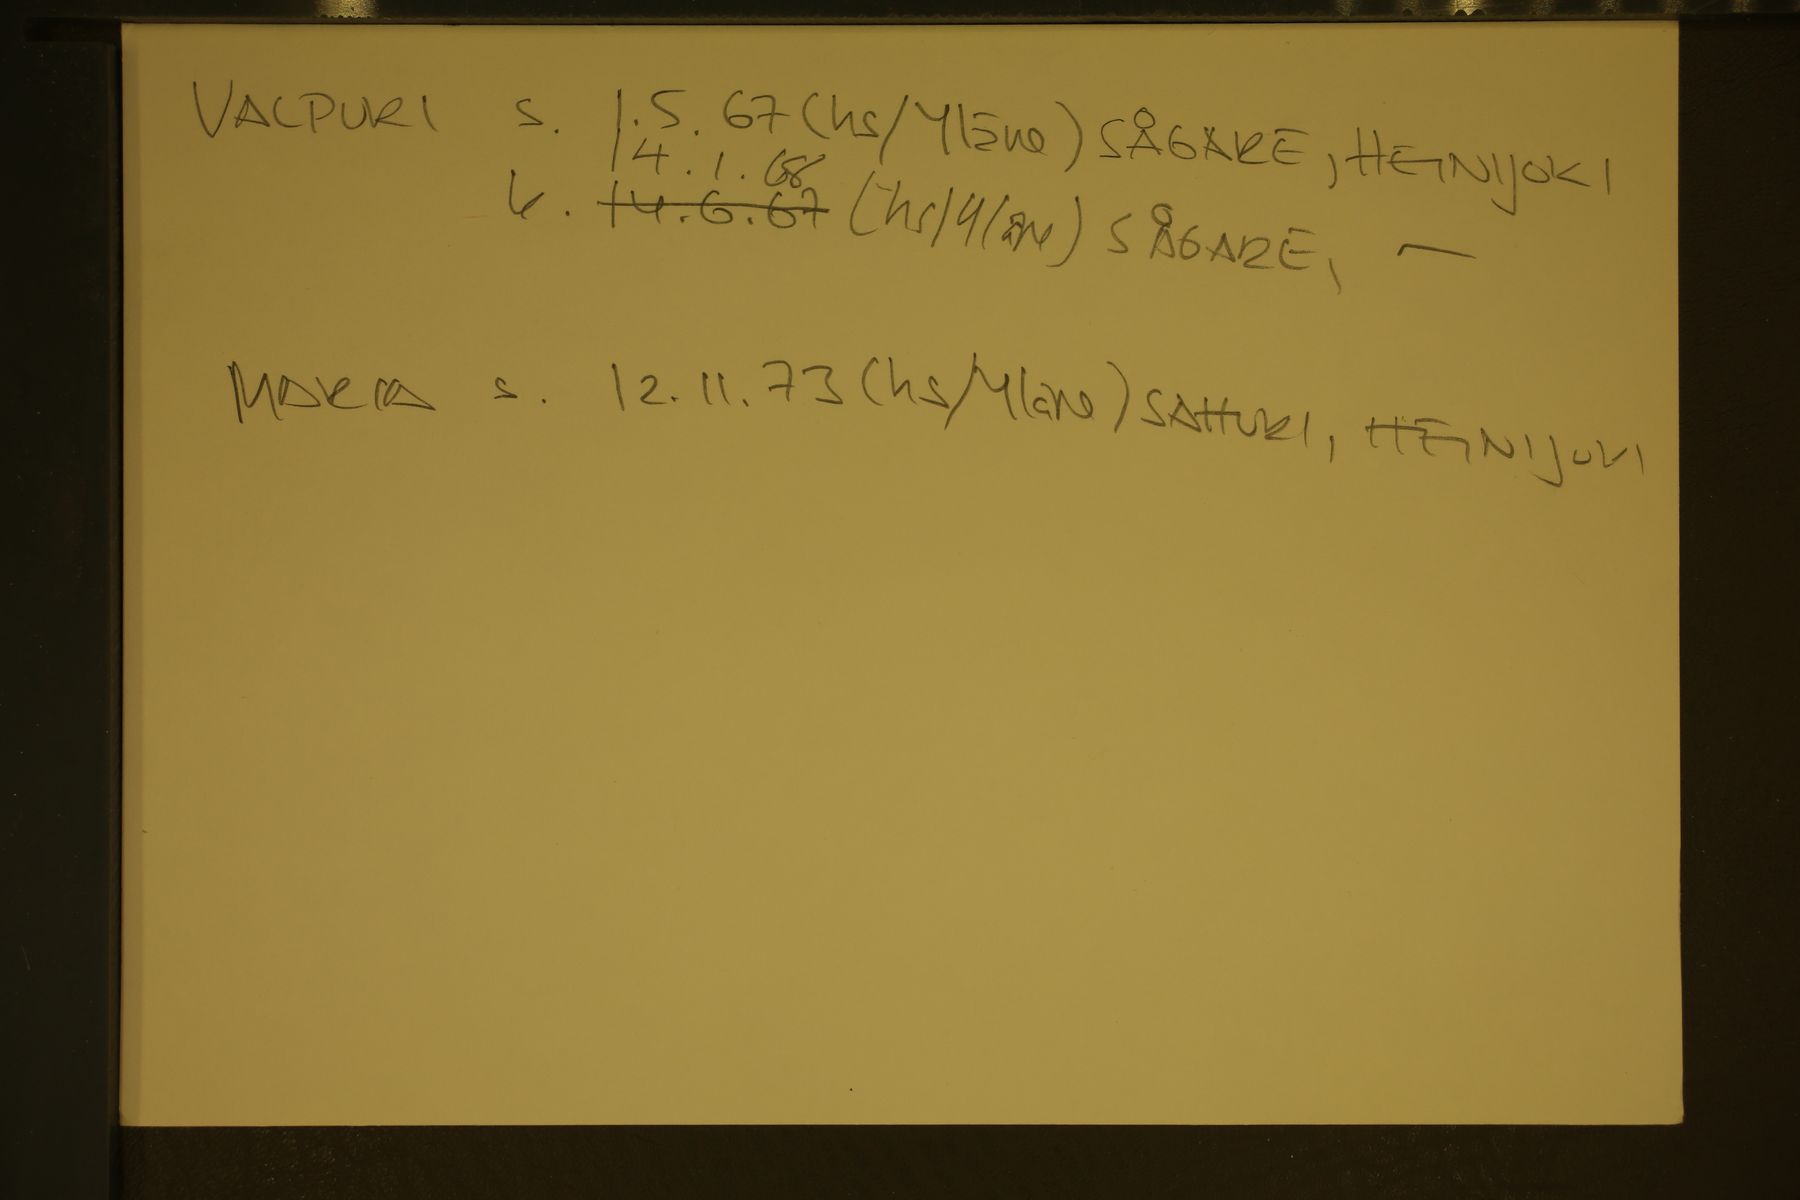 VALPURI s. 1.5.67 (hs/Yläne) SÅGARE, HEINIJOKI
14.1.68
k. 14.6.67 (hs/Yläne) SÅGARE, —
MARIA s. 12.11.73 (hs/Yläne) SAHURI, HEINIJOKI